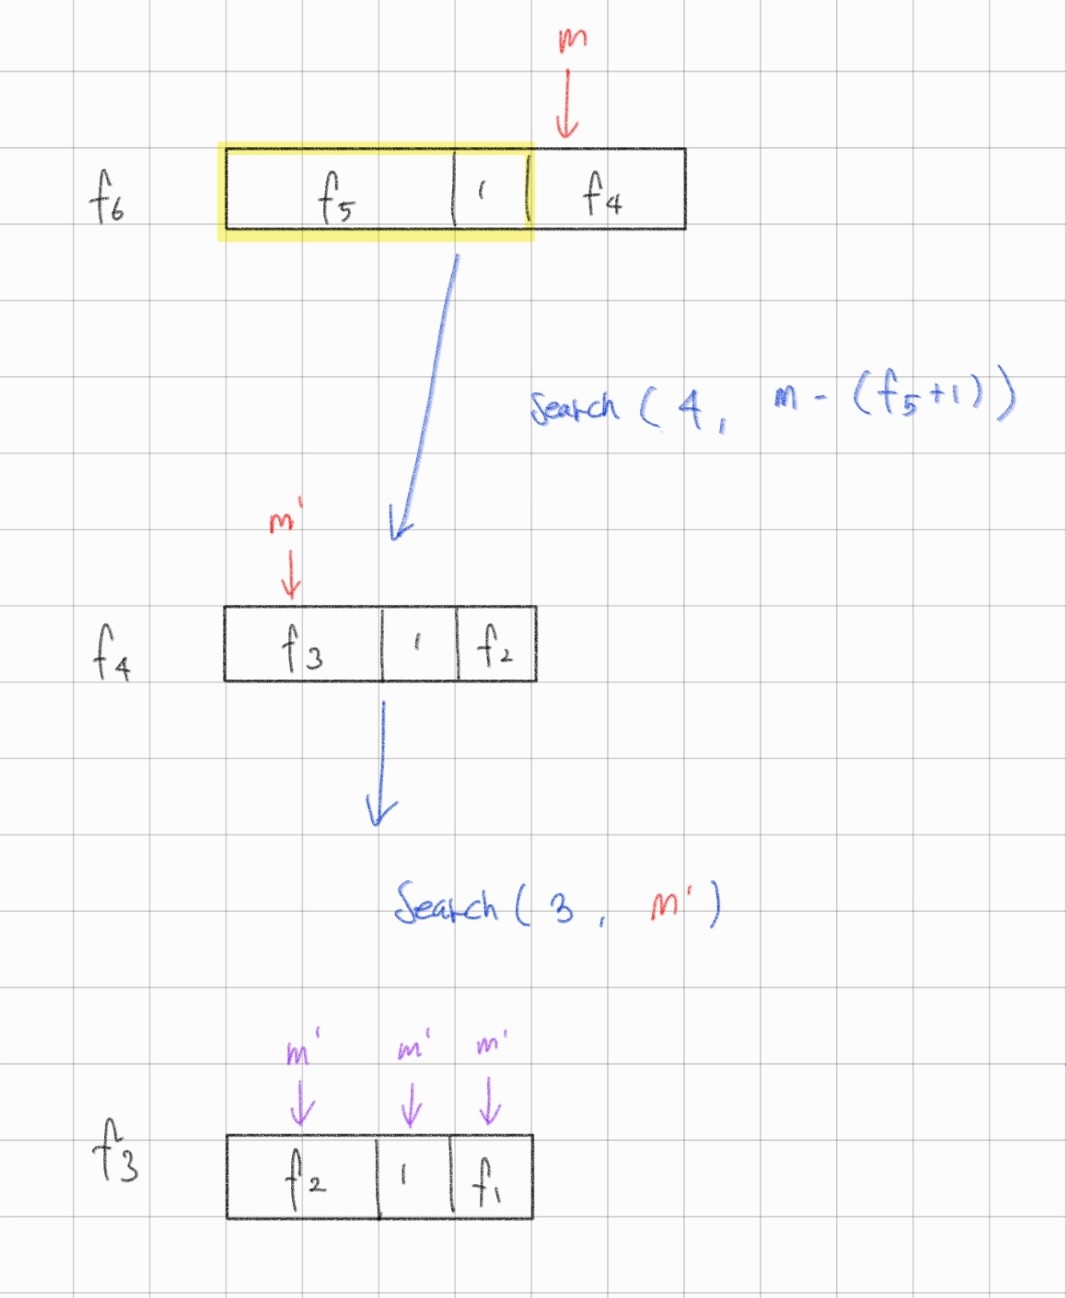 m
f₆ f₅ 1 f₄
Search ( 4, m - (f₅+1))
m'
f₄ f₃ 1 f₂
Search ( 3 , m' )
m' m' m'
f₃ f₂ 1 f₁